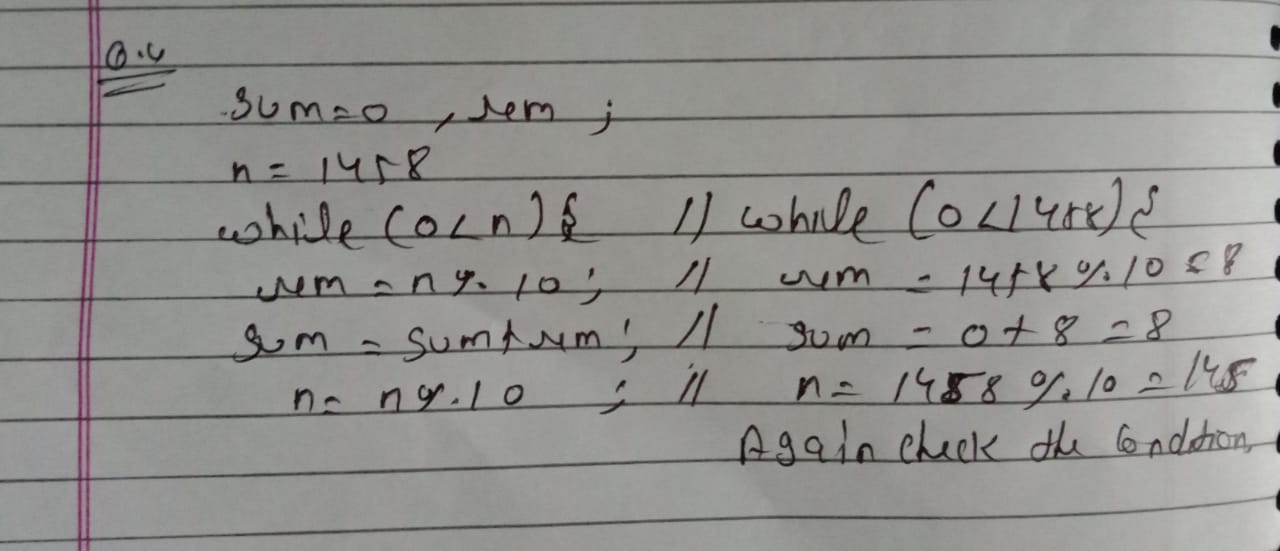 Q.4
sum=0 , rem ;
n = 1458
while (0<n) { // while (0<1458) {
rem = n % 10 ; // rem = 1458 % 10 = 8
sum = sum+rem ; // sum = 0 + 8 = 8
n = n % 10 ; // n = 1458 % 10 = 145
Again check the Condition,